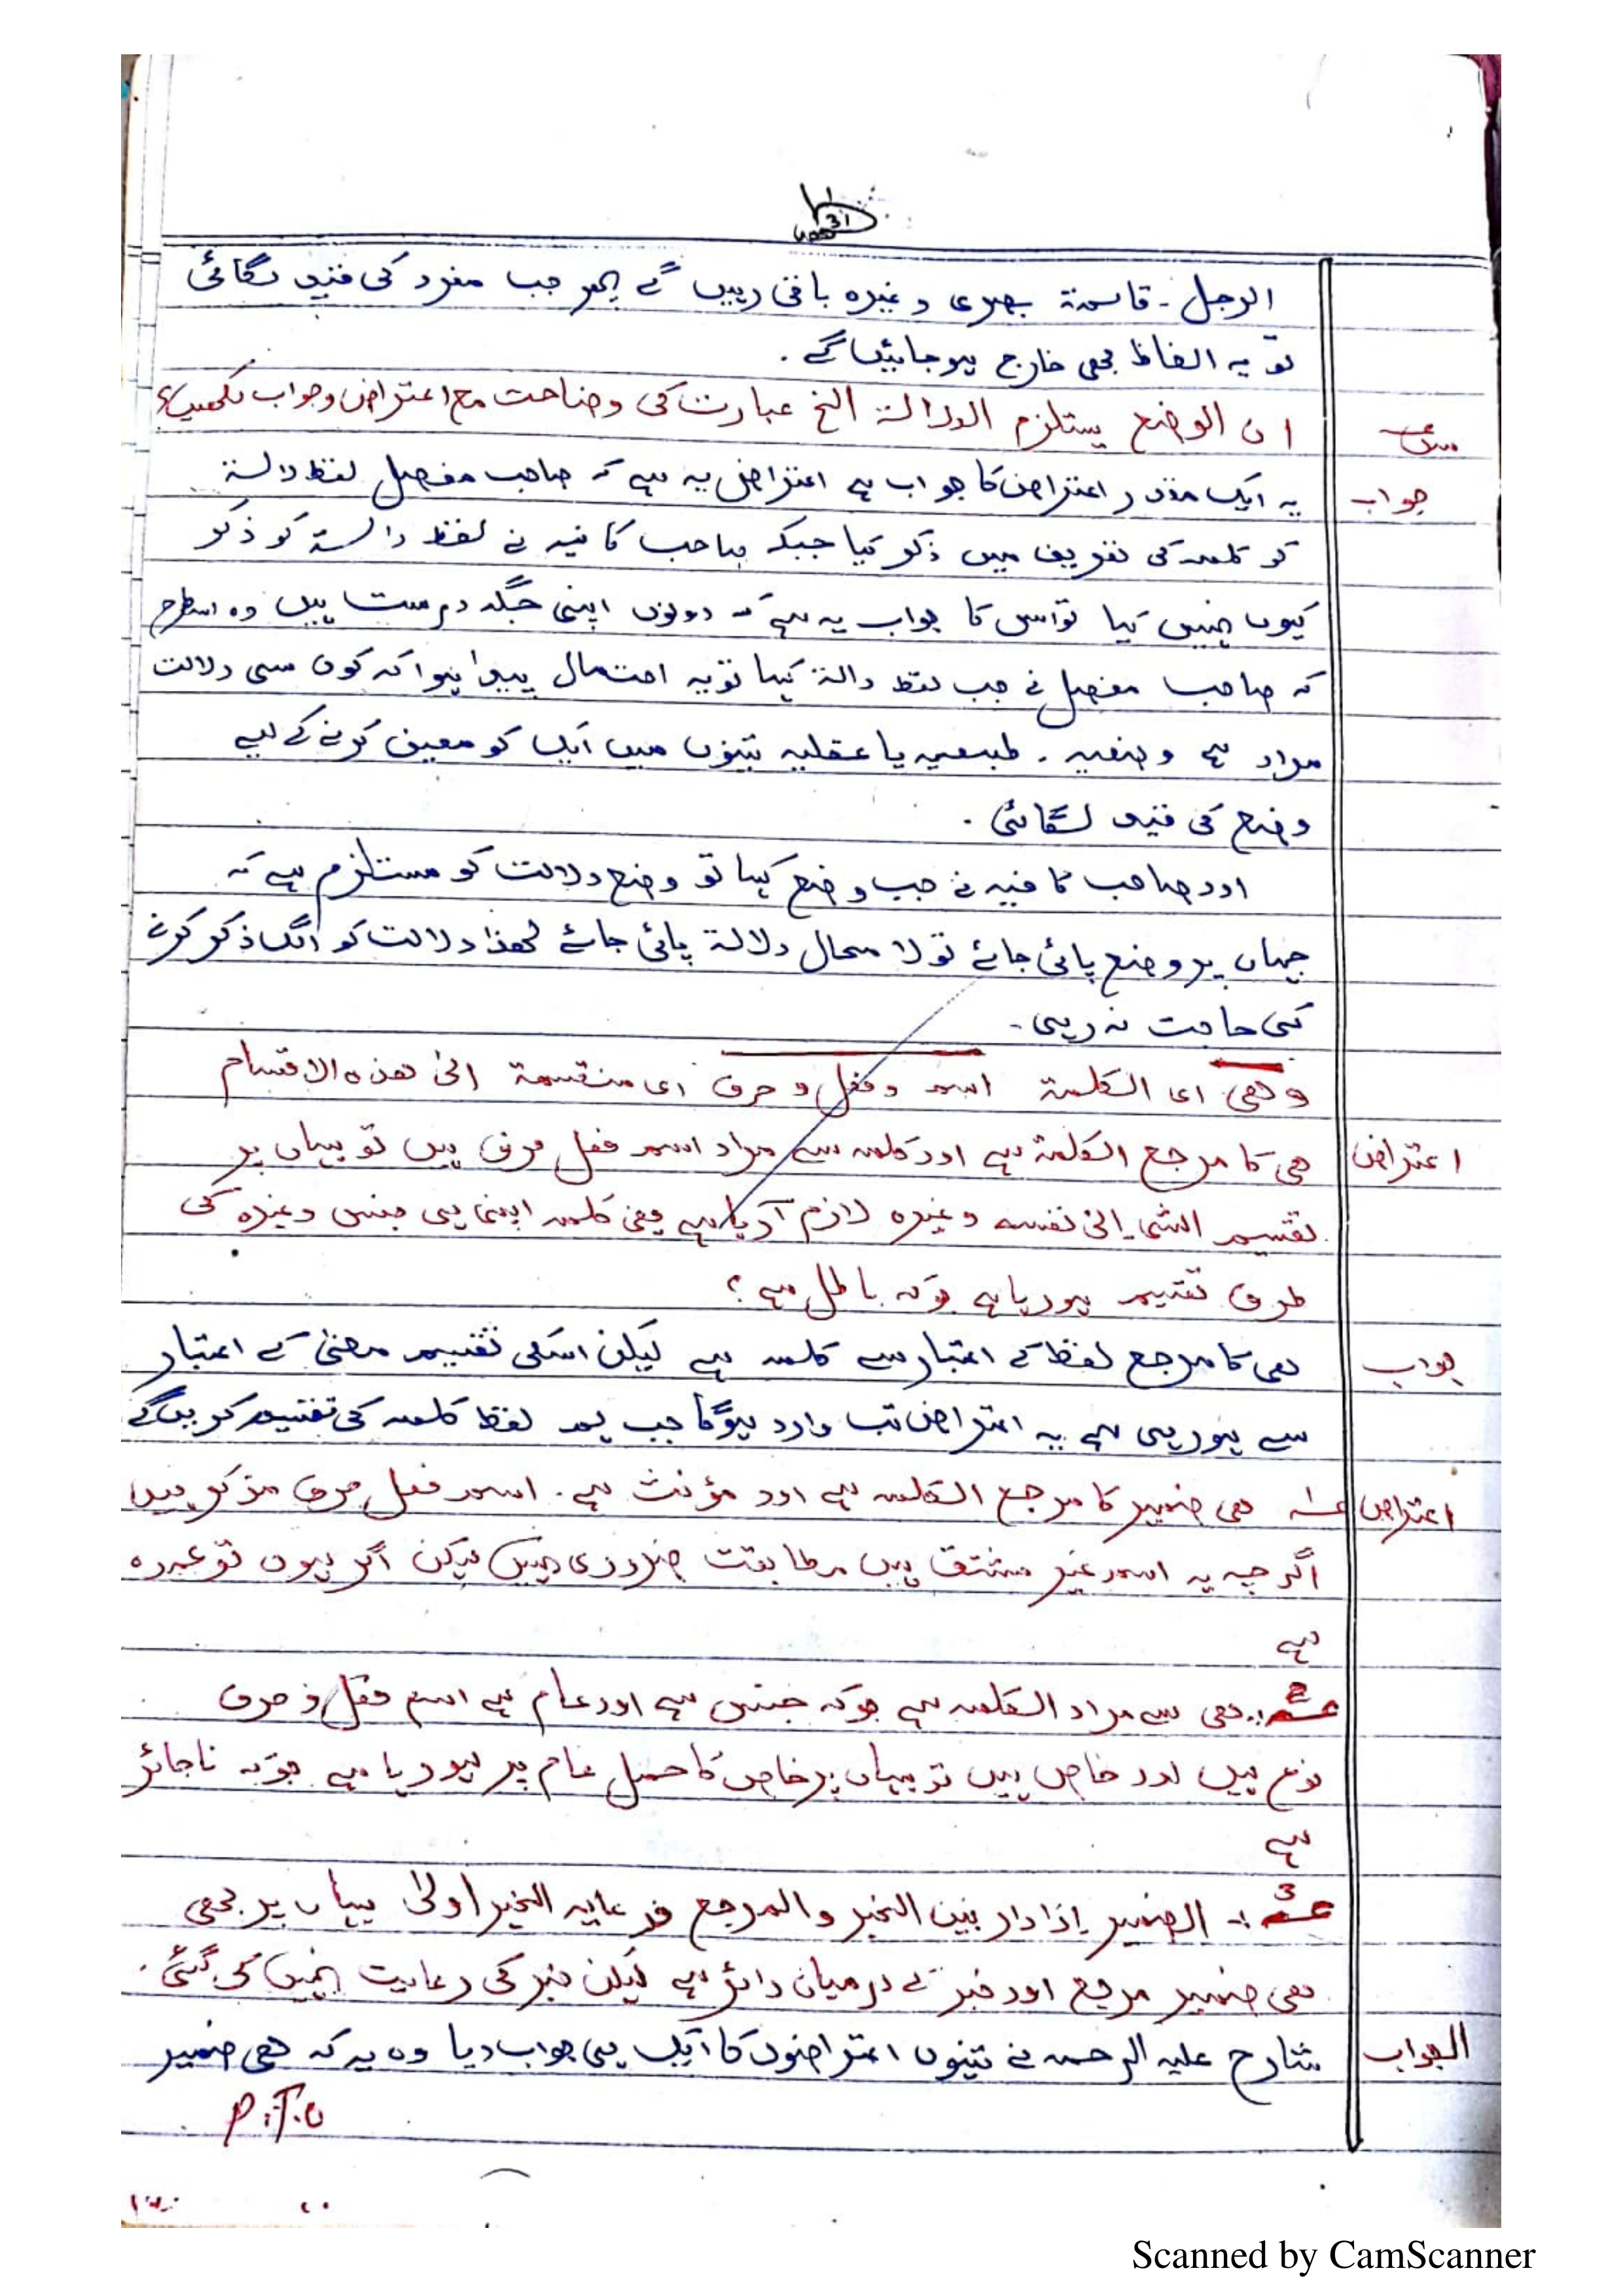 الرجل۔ قائمۃ بصری وغیرہ باقی رہیں گے پھر جب مفرد کی قید لگائی
تو یہ الفاظ بھی خارج ہوجائیں گے۔
ان الوضع یستلزم الدلالۃ الخ عبارت کی وضاحت مع اعتراض وجواب لکھیں؟
جواب یہ ایک مقدر اعتراض کا جواب ہے اعتراض یہ ہے کہ صاحب مفصل لفظ دالۃ
کو کلمہ کی تعریف میں ذکر کیا جبکہ صاحب کافیہ نے لفظ دالۃ کو ذکر
کیوں نہیں کیا تو اس کا جواب یہ ہے کہ دونوں اپنی جگہ درست ہیں وہ اسطرح
کہ صاحب مفصل نے جب لفظ دالۃ کہا تو یہ احتمال پیدا ہوا کہ کون سی دلالت
مراد ہے وضعیہ۔ طبعیہ یا عقلیہ تینوں میں ایک کو معین کرنے کے لیے
وضع کی قید لگائی۔
اور صاحب کافیہ نے جب وضع کہا تو وضع دلالت کو مستلزم ہے کہ
جہاں پر وضع پائی جائے تو لا محال دلالۃ پائی جائے لھذا دلالت کو الگ ذکر کرنے
کی حاجت نہ رہی۔
وھی ای الکلمۃ اسم و فعل و حرف ای منقسمۃ الی ھذہ الاقسام
اعتراض ھی کا مرجع الکلمۃ ہے اور کلمہ سے مراد اسم فعل حرف ہیں تو یہاں پر
تقسیم الشی الی نفسہ وغیرہ لازم آرہا ہے یعنی کلمہ اپنی ہی جنس وغیرہ کی
طرف تقسیم ہورہا ہے جوکہ باطل ہے؟
جواب ھی کا مرجع لفظ کے اعتبار سے کلمہ ہے لیکن اسکی تقسیم معنیٰ کے اعتبار
سے ہورہی ہے یہ اعتراض تب وارد ہوگا جب ہم لفظ کلمہ کی تقسیم کریں گے
اعتراض ۱ ھی ضمیر کا مرجع الکلمہ ہے اور مؤنث ہے۔ اسم فعل حرف مذکر ہیں
اگرچہ یہ اسم غیر مشتق ہیں مطابقت ضروری نہیں لیکن اگر ہوں تو عمدہ
ہے
2:۔ ھی سے مراد الکلمہ ہے جوکہ جنس ہے اور عام ہے اسم فعل و حرف
نوع ہیں اور خاص ہیں تو یہاں پر خاص کا حمل عام پر ہورہا ہے جوکہ ناجائز
ہے
3:۔ الضمیر إذا دار بین الخبر والمرجع فرعایۃ الخبر اولیٰ یہاں پر بھی
ھی ضمیر مرجع اور خبر کے درمیان دائر ہے لیکن خبر کی رعایت نہیں کی گئی۔
الجواب شارح علیہ الرحمہ نے تینوں اعتراضوں کا ایک ہی جواب دیا وہ یہ کہ ھی ضمیر
P.T.O
Scanned by CamScanner